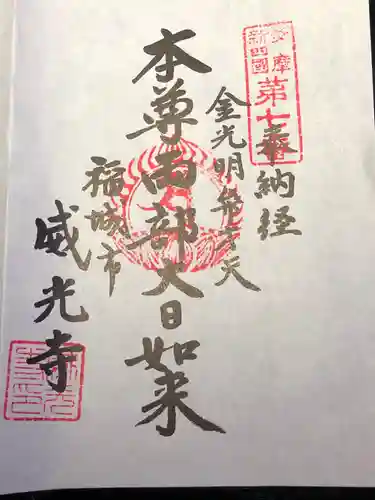 多摩
新四國
第七番
奉納経
金光明弁才天
本尊両部大日如来
稲城市
威光寺